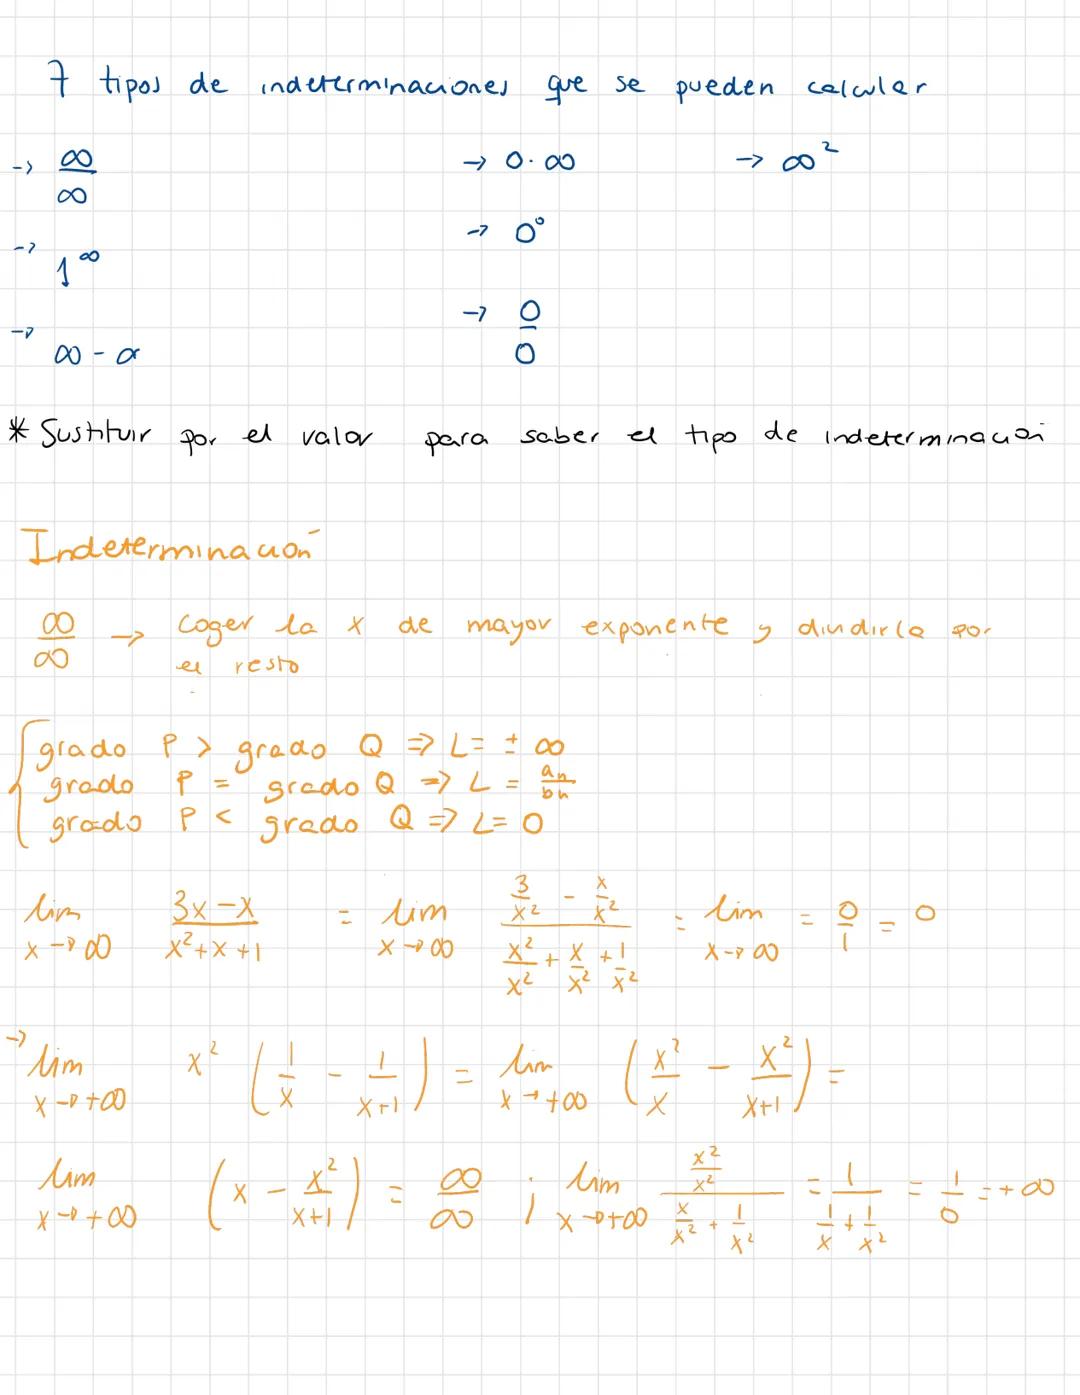 7 tipos de indeterminaciones que se pueden calcular
-> ∞/∞ -> 0·∞ -> ∞²
-> 1^∞ -> 0⁰
-> ∞ - α -> 0/0
* Sustituir por el valor para saber el tipo de indeterminación
Indeterminación
∞/∞ -> Coger la x de mayor exponente y dividirla por
el resto
grado P > grado Q => L = ± ∞
grado P = grado Q => L = an/bn
grado P < grado Q => L = 0
lim x->∞ (3x-x)/(x²+x+1) = lim x->∞ (3/x² - x/x²)/(x²/x² + x/x² + 1/x²) = lim x->∞ = 0/1 = 0
-> lim x->+∞ x² (1/x - 1/(x+1)) = lim x->+∞ (x²/x - x²/(x+1)) =
lim x->+∞ (x - x²/(x+1)) = ∞/∞ ; lim x->+∞ (x²/x²)/(x/x² + 1/x²) = 1/(1/x + 1/x²) = 1/0 = +∞